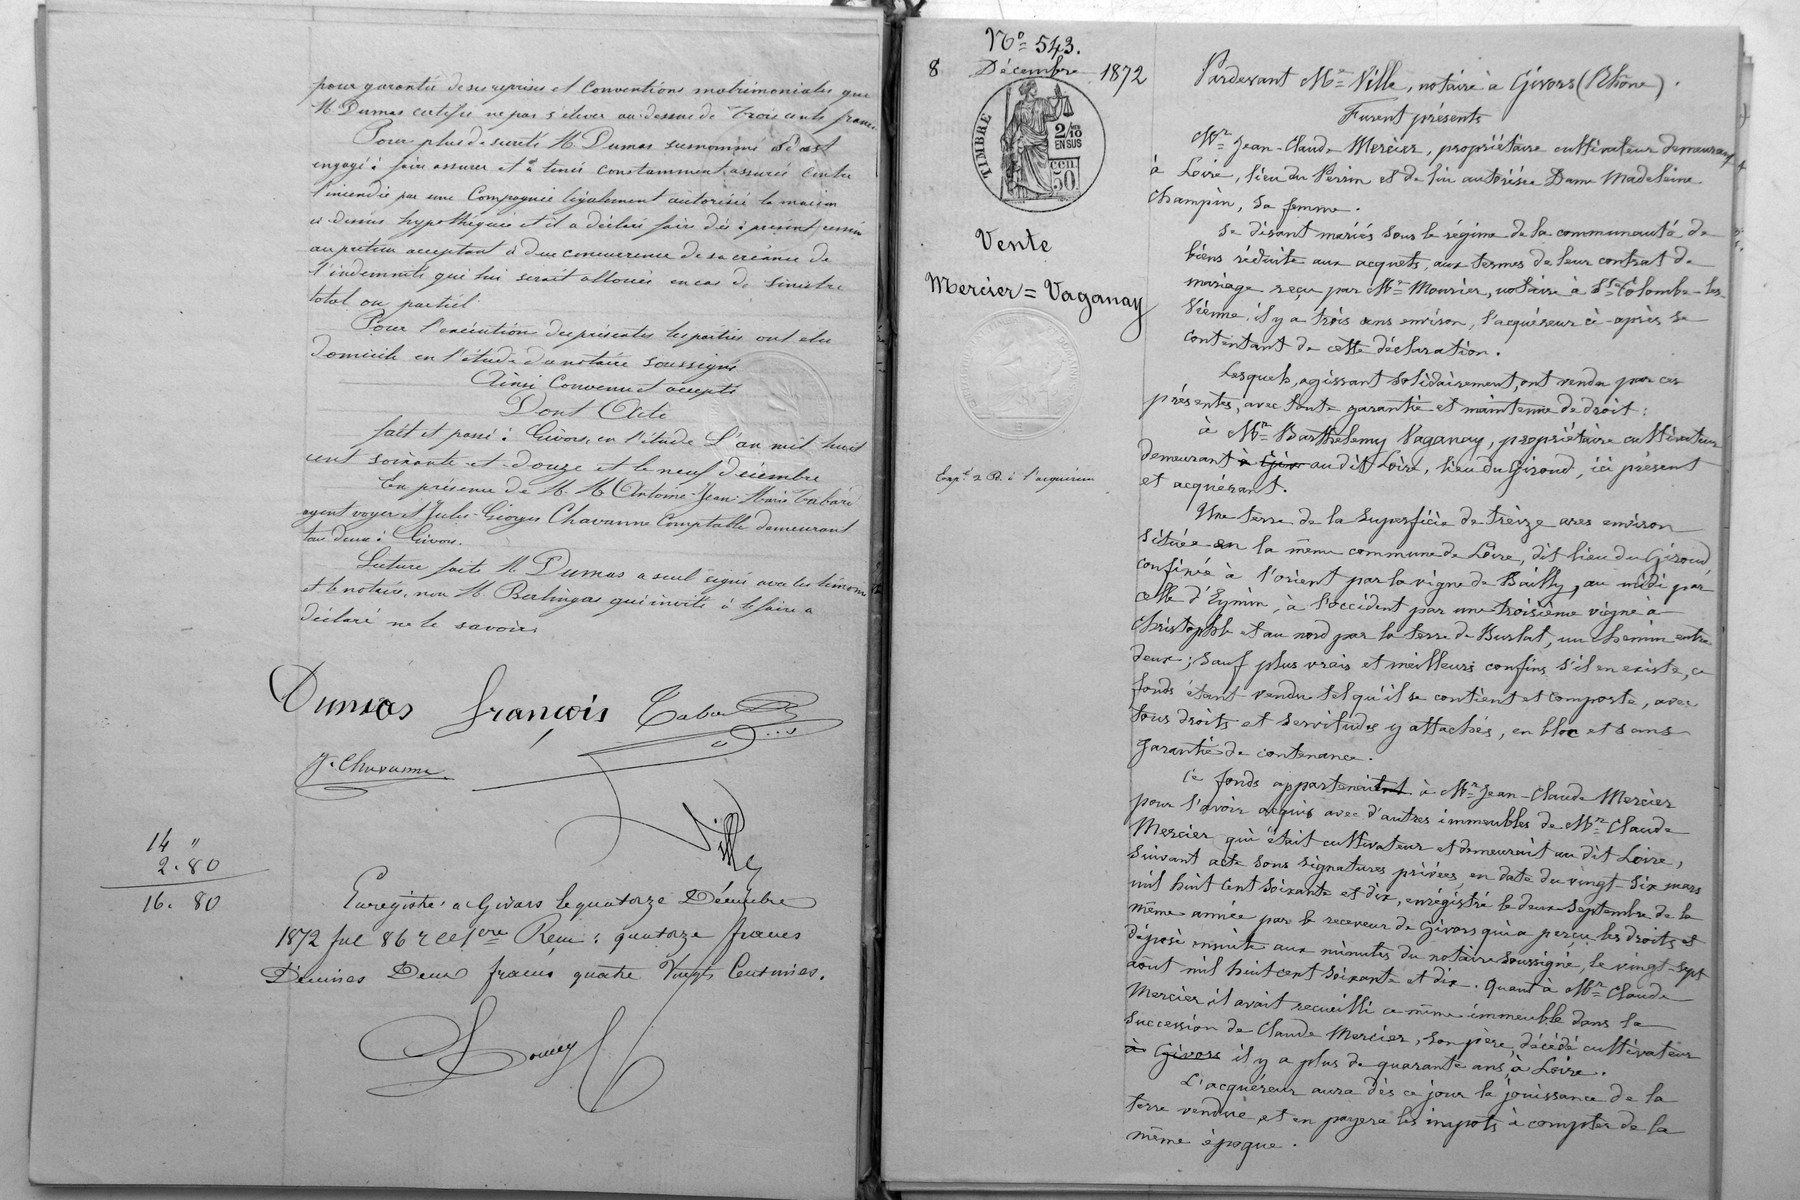 pour garantie de ses reprises et Conventions matrimoniales que
M. Dumas certifie ne pas s'élever au-dessus de trois cents francs.
Pour plus de sureté M. Dumas susnommé s'est
engagé à faire assurer et à tenir constamment assurée contre
l'incendie par une Compagnie légalement autorisée la maison
ci-dessus hypothéquée et il a déclaré faire dès à présent
au prêteur acceptant à due concurrence de sa créance de
l'indemnité qui lui serait allouée en cas de sinistre
total ou partiel.
Pour l'exécution des présentes les parties ont élu
domicile en l'étude du notaire soussigné
Ainsi Convenu et accepté
Dont Acte
fait et passé à Givors, en l'étude L'an mil huit
cent soixante et douze et le neuf décembre
En présence de M. M. Antoine-Jean-Marie Tabard
agent voyer et Jules-Georges Chavanne Comptable demeurant
tous deux à Givors.
Lecture faite M. Dumas a seul signé avec les témoins
et le notaire, non M. Berlingas qui invité à le faire a
déclaré ne le savoir.
Dumas françois Tabard
J. Chavanne
Ville
14 "
2.80
16.80
Enregistré à Givors le quatorze Décembre
1872 fol 86 r ce 1ere Reçu : quatorze francs
Décimes Deux francs quatre Vingts Centimes.
No 543.
8 Décembre 1872
TIMBRE
2/10
EN SUS
50 cen
Vente
Mercier = Vaganay
Exp.t 2 R. à l'acquéreur
Pardevant Me Ville, notaire à Givors (Rhône).
Furent présents
Mr Jean-Claude Mercier, propriétaire cultivateur demeurant
à Loire, lieu du Perrin et de lui autorisée Dame Madeleine
Champin, sa femme.
Se disant mariés sous le régime de la communauté de
biens réduite aux acquets, aux termes de leur contrat de
mariage reçu par Me Mourier, notaire à Ste Colombe-les-
Vienne, il y a trois ans environ, l'acquéreur ci-après se
contentant de cette déclaration.
Lesquels, agissant solidairement, ont vendu par ces
présentes, avec toute garantie et maintenue de droit :
à Mr Barthélemy Vaganay, propriétaire cultivateur
demeurant à Giv au dit Loire, lieu du Giroud, ici présent
et acquérant.
Une terre de la superficie de treize ares environ
située en la même commune de Loire, dit lieu du Giroud,
confinée à l'orient par la vigne de Bailly, au midi par
celle d'Eymin, à l'occident par une troisième vigne à
Christophle et au nord par la terre de Burlat, un chemin entre
deux ; sauf plus vrais et meilleurs confins s'il en existe, ce
fonds étant vendu tel qu'il se contient et comporte, avec
tous droits et servitudes y attachés, en bloc et sans
garantie de contenance.
Ce fonds appartenait à Mr Jean-Claude Mercier
pour l'avoir acquis avec d'autres immeubles de Mr Claude
Mercier qui était cultivateur et demeurait au dit Loire,
suivant acte sous signatures privées, en date du vingt-six mars
mil huit cent soixante et dix, enrégistré le deux septembre de la
même année par le receveur de Givors qui a perçu les droits et
déposé ensuite aux minutes du notaire soussigné, le vingt-sept
août mil huit cent soixante et dix. Quant à Mr Claude
Mercier il avait recueilli ce même immeuble dans la
succession de Claude Mercier, son père, décédé cultivateur
à Givors il y a plus de quarante ans, à Loire.
L'acquéreur aura dès ce jour la jouissance de la
terre vendue, et en payera les impots à compter de la
même époque.